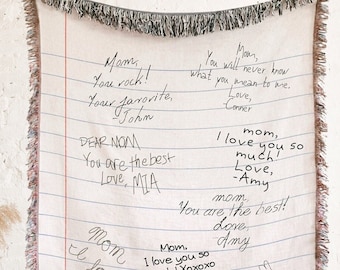 Mom,
You rock!
Your favorite,
John
Mom,
You will never know
what you mean to me.
Love,
Conner
DEAR MOM
You are the best
Love, MIA
mom,
I love you so
much!
Love,
-Amy
mom,
You are the best!
Love,
Amy
Mom
I
Mom,
I love you so
xoxoxo